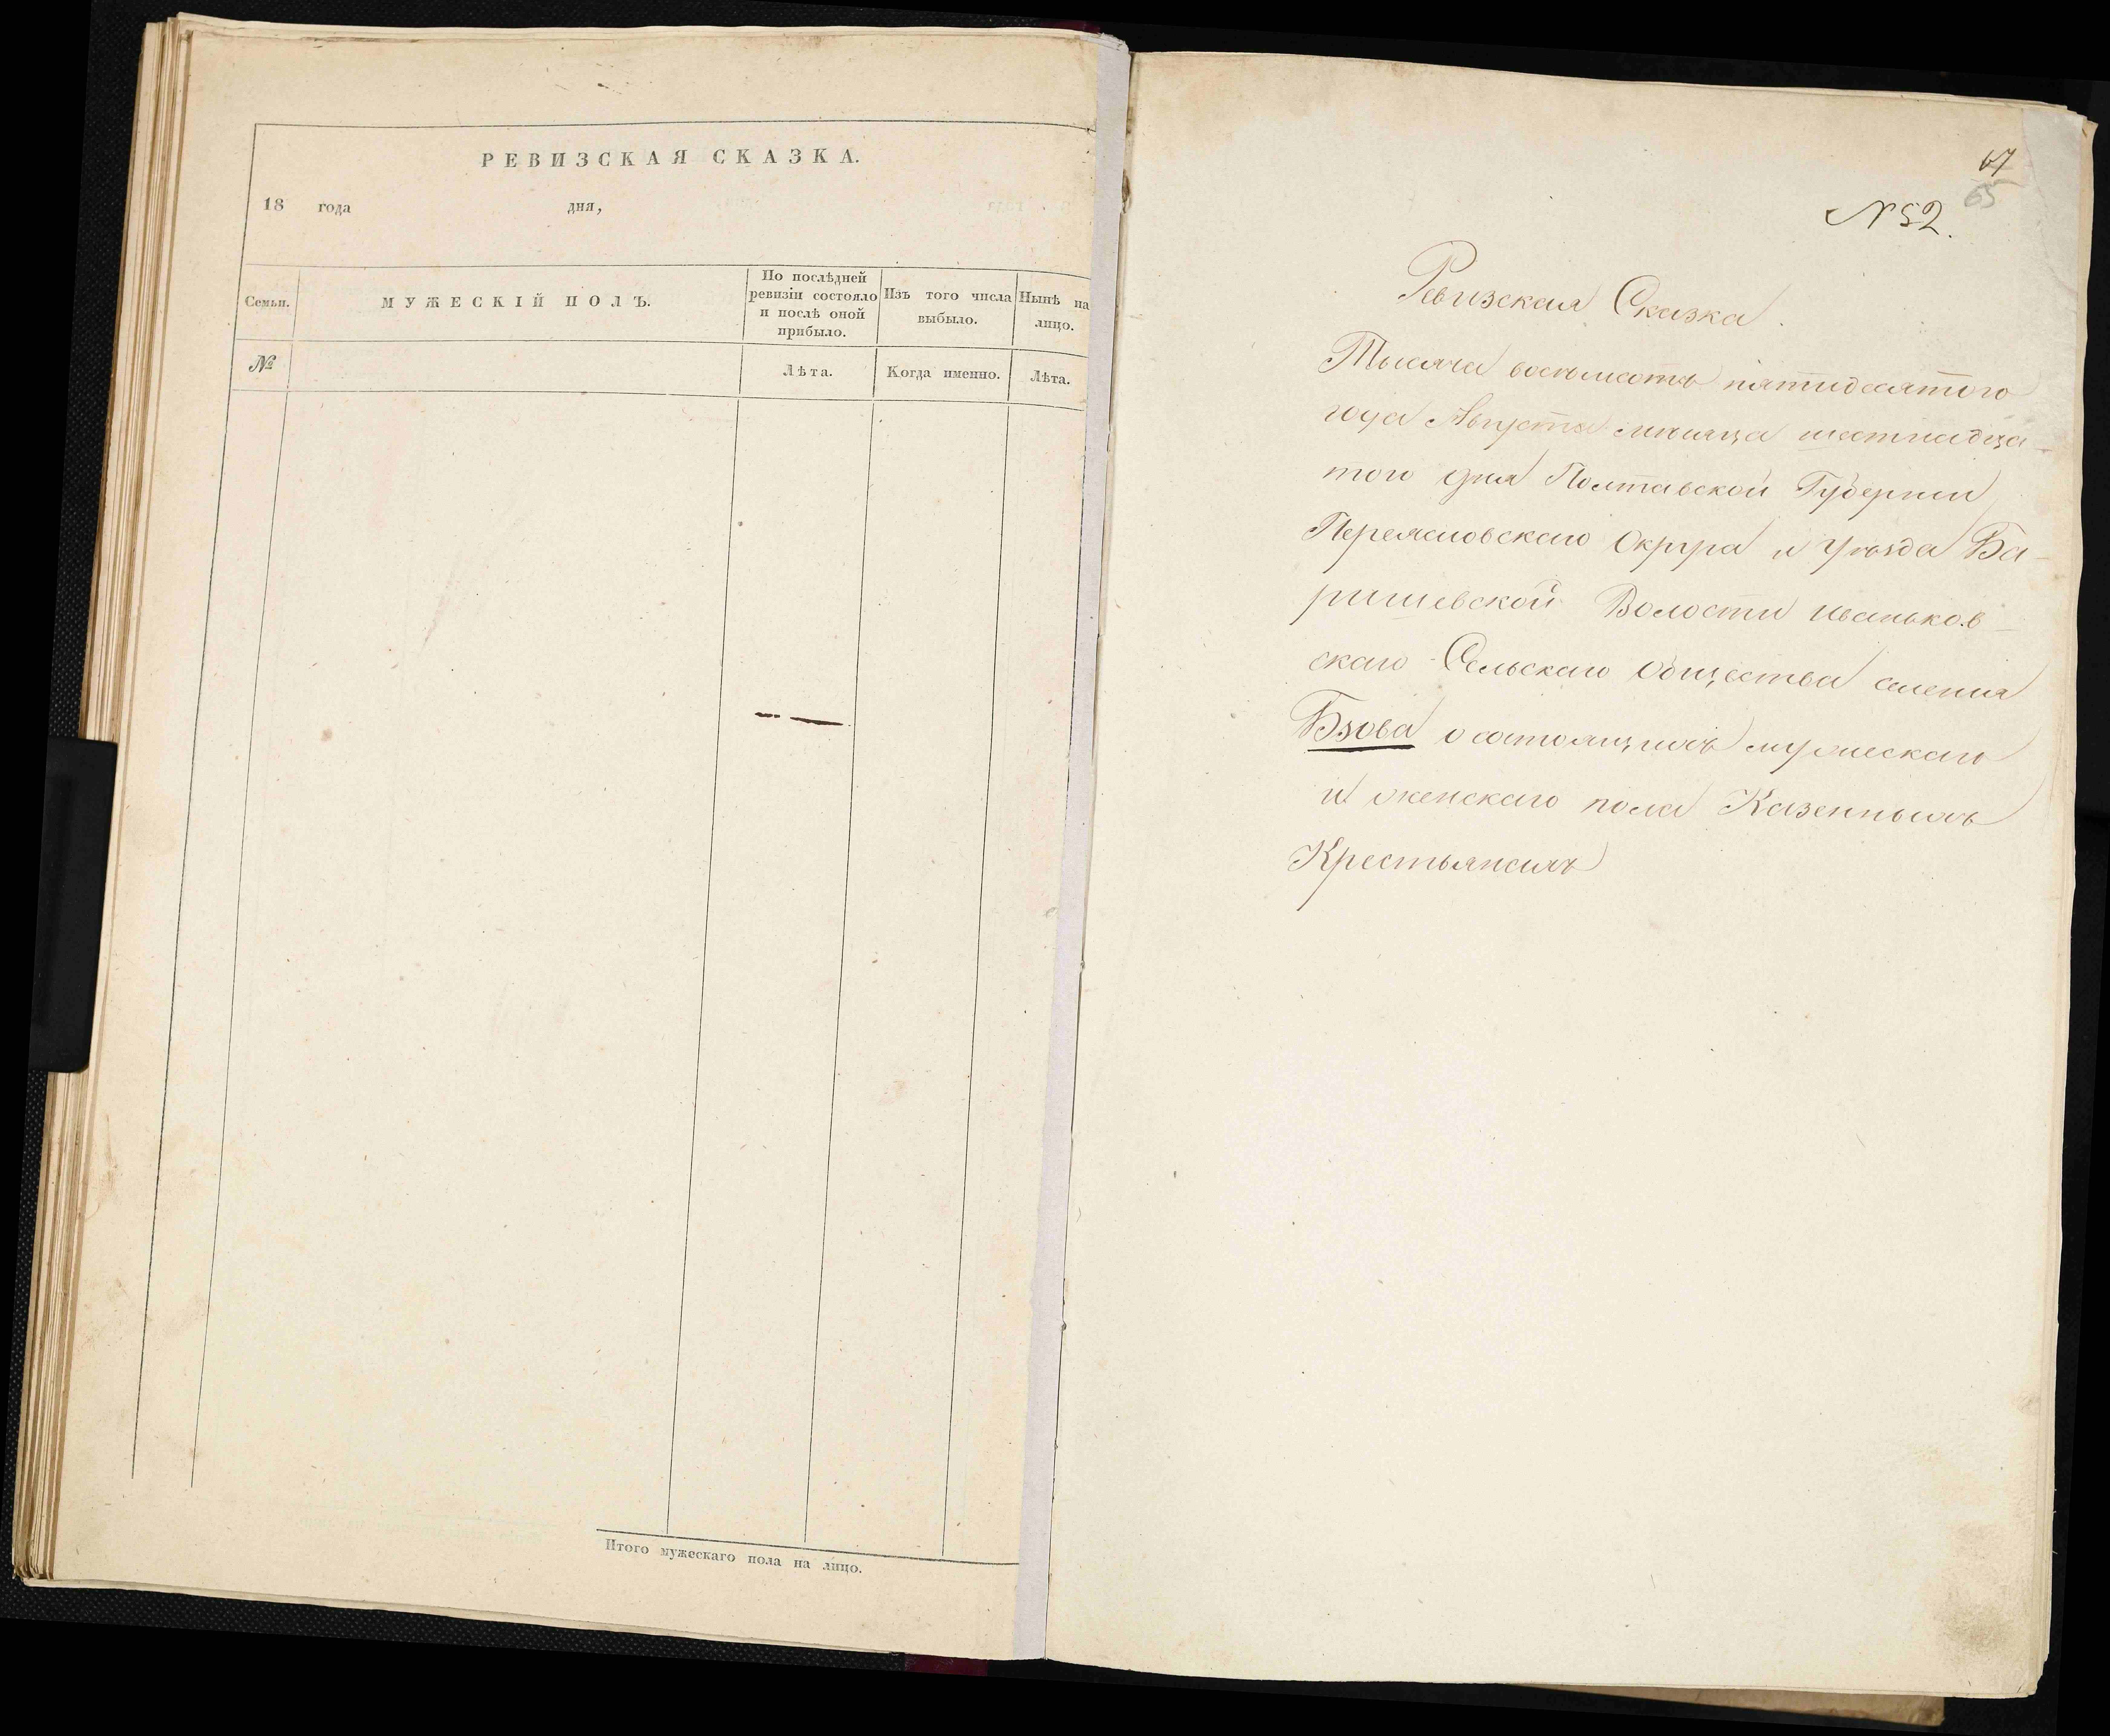 РЕВИЗСКАЯ СКАЗКА.
18 года дня,
Семьи.
МУЖЕСКІЙ ПОЛЪ.
По послѣдней
ревизіи состояло
и послѣ оной
прибыло.
Изъ того числа
выбыло.
Нынѣ на
лицо.
№
Лѣта.
Когда именно.
Лѣта.
Итого мужескаго пола на лицо.
67
65
№ 52.
Ревизская Сказка.
Тысяча восѣмсотъ пятидесятого
года Августа мѣсяца шестнадца-
того дня Полтавской Губерніи
Переясловскаго Округа и Уѣзда Ба-
ришевской Волости иваньков-
скаго Сельскаго Общества селенія
Бзова о состоящихъ мужескаго
и женскаго пола Казенныхъ
Крестьянахъ